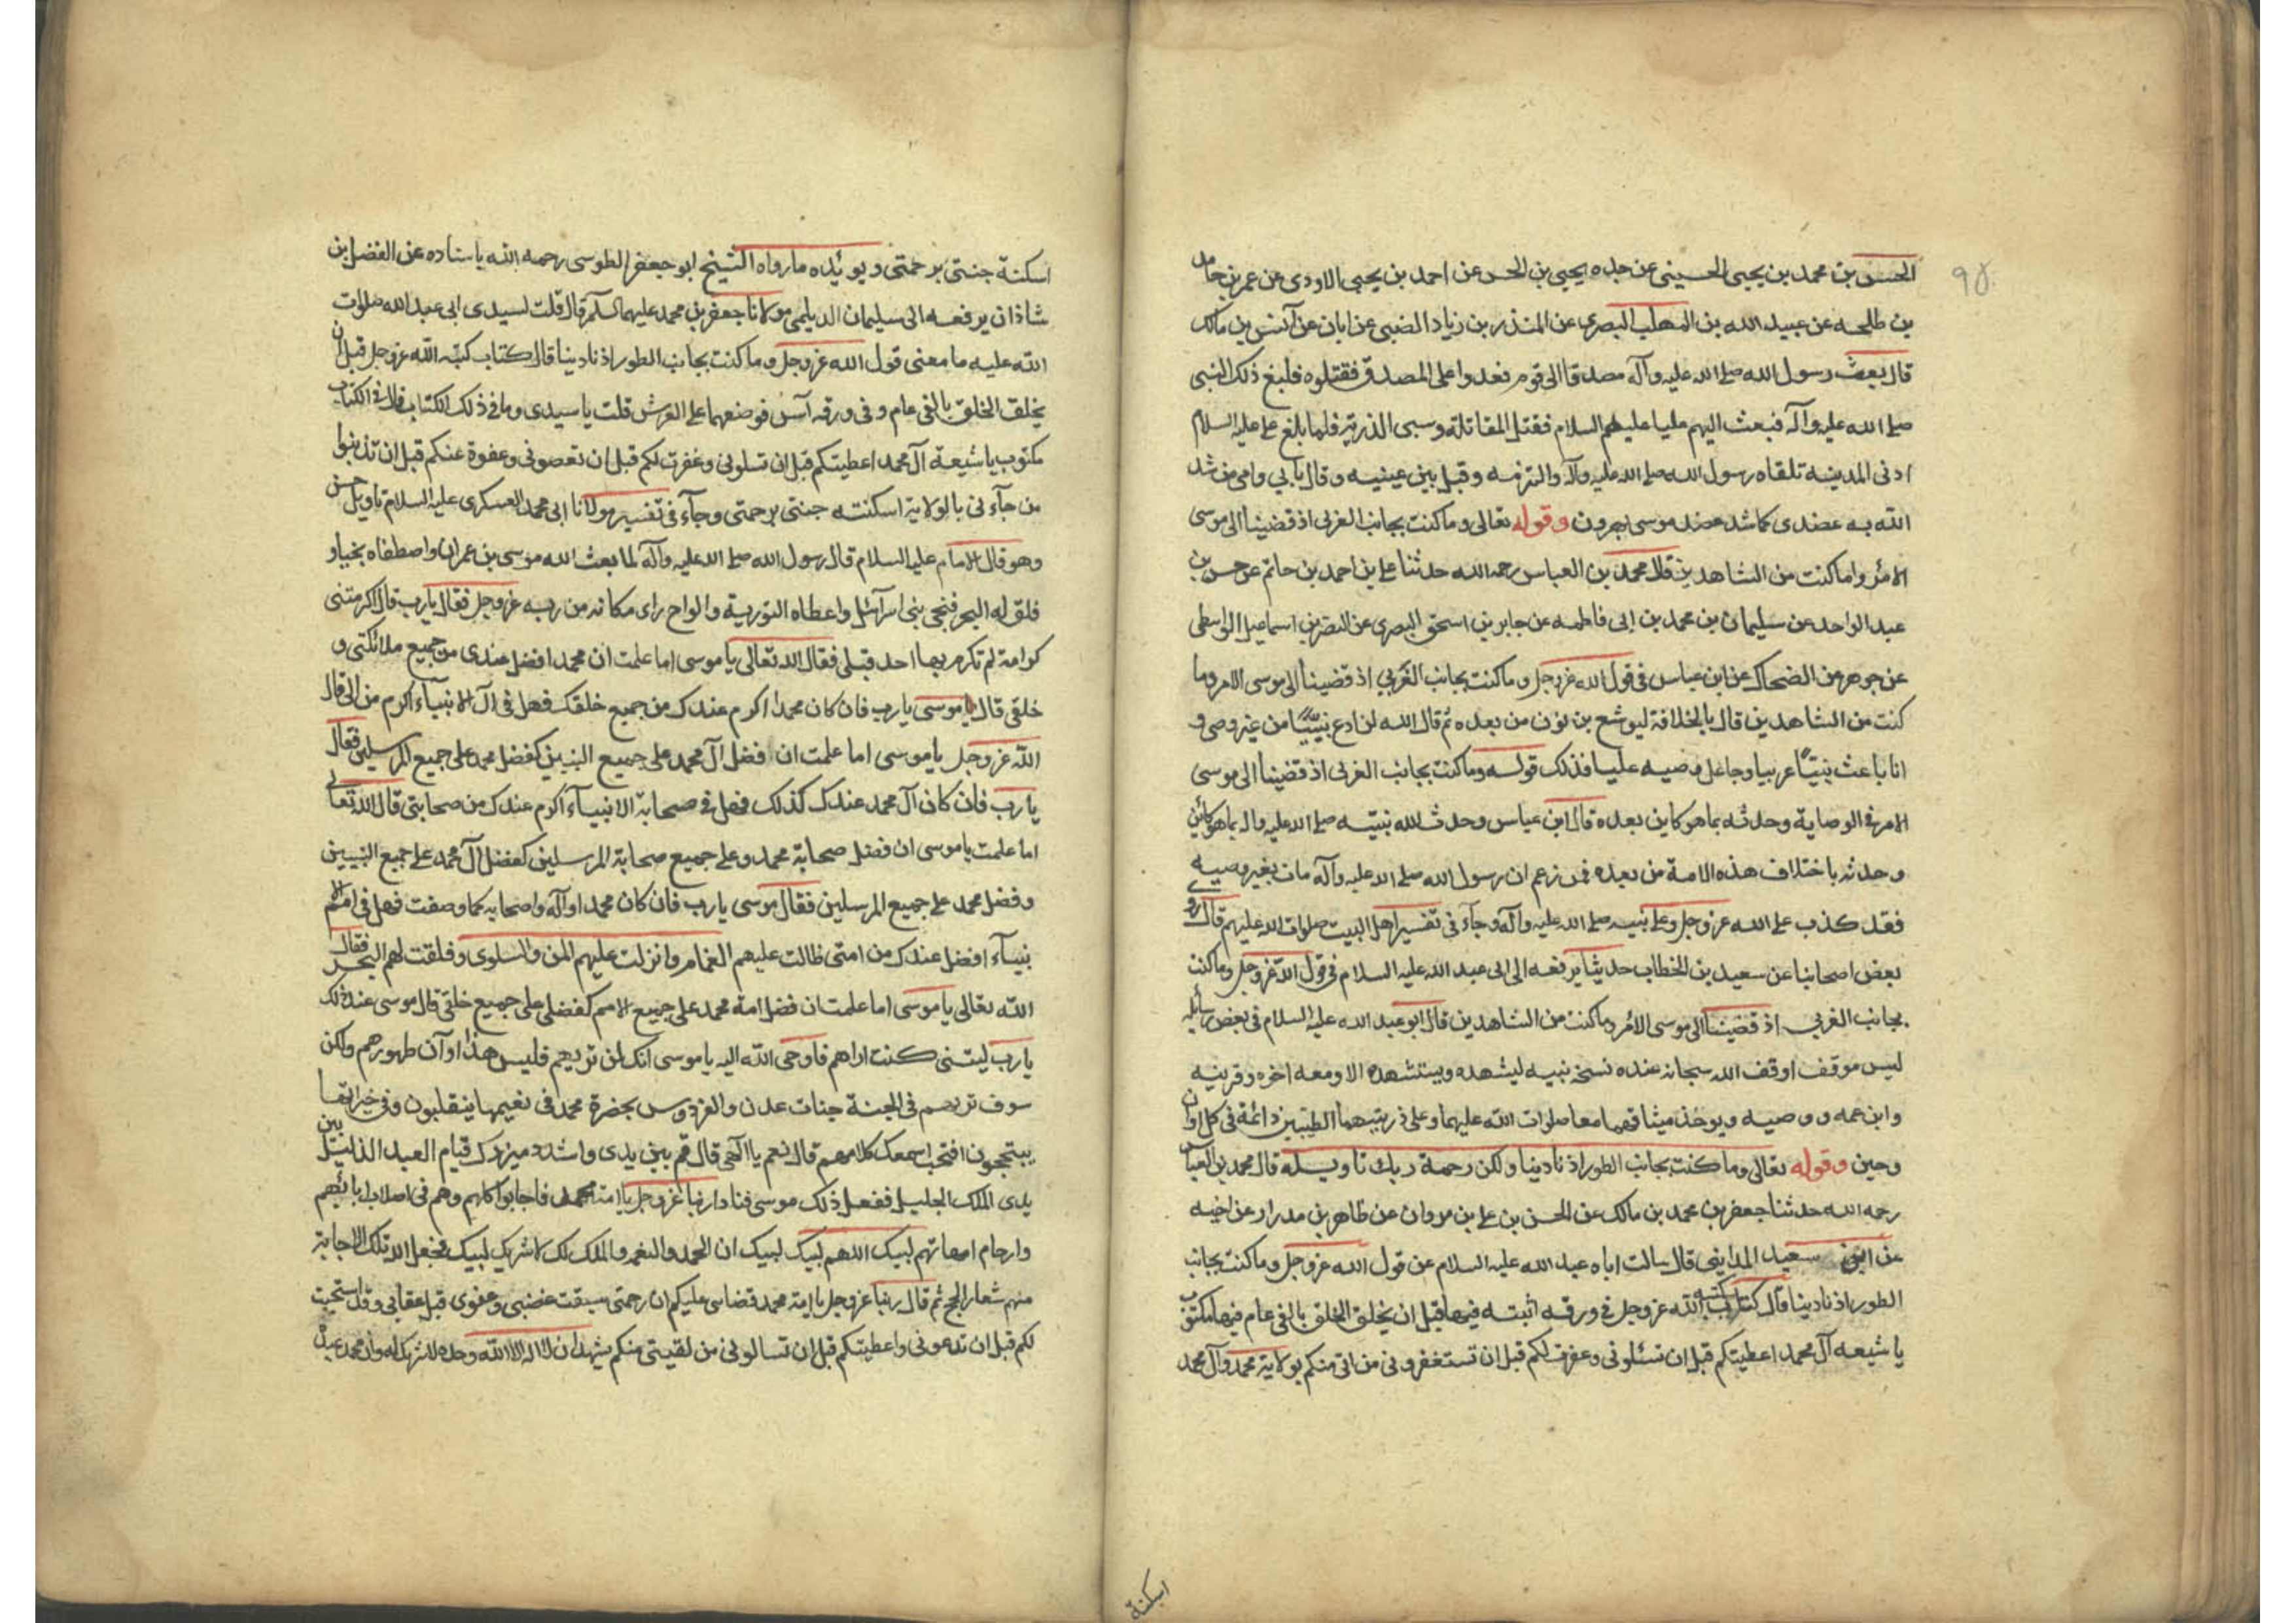 ٩٥
الحسن بن محمد بن يحيى الحسينى عن جده يحيى بن الحسن عن احمد بن يحيى الاودى عن عمر بن حامد
بن طلحه عن عبيد الله بن المهلب البصرى عن المنذر بن زياد الضبى عن ابان عن آنس بن مالك
قال بعث رسول الله صلى الله عليه وآله مصدقا الى قوم فعدوا على المصدق فقتلوه فبلغ ذلك النبى
صلى الله عليه وآله فبعث اليهم عليا عليهم السلام فقتل المقاتلة وسبى الذرية فلما بلغ على عليه السلام
ادنى المدينه تلقاه رسول الله صلى الله عليه وآله والتزمه وقبل بين عينيه وقال بابي وامي من شد
الله به عضدى كما شد عضد موسى بهرون وقوله تعالى وما كنت بجانب الغربى اذ قضينا الى موسى
الامر واما كنت من الشاهدين قال محمد بن العباس رحمه الله حدثنا على بن احمد بن حاتم عن حسن بن
عبد الواحد عن سليمان بن محمد بن ابى فاطمه عن جابر بن اسحق البصرى عن النضر بن اسماعيل الواسطى
عن جوهر عن الضحاك عن ابن عباس فى قول الله عز وجل وما كنت بجانب الغربي اذ قضينا الى موسى الامر وما
كنت من الشاهدين قال بالخلافة ليوشع بن نون من بعده ثم قال الله لن ادع نبيًّا من غير وصى و
انا باعث نبيًّا عربيا وجاعل وصيه عليا فذلك قوله وما كنت بجانب الغربى اذ قضينا الى موسى
الامر فى الوصاية وحدثه بما هو كاين بعده قال ابن عباس وحدث الله نبيّه صلى الله عليه واله بما هو كائن
وحدثه باختلاف هذه الامة من بعده فمن زعم ان رسول الله صلى الله عليه وآله مات بغير وصيه
فقد كذب على الله عز وجل وعلى نبيه صلى الله عليه وآله وجآء فى تفسير اهل البيت صلوات الله عليهم قال روى
بعض اصحابنا عن سعيد بن الخطاب حديثا يرفعه الى ابى عبد الله عليه السلام فى قول الله عز وجل وما كنت
بجانب الغربي اذ قضينا الى موسى الامر وما كنت من الشاهدين قال ابو عبد الله عليه السلام فى بعض رسائله
ليس موقف اوقف الله سبحانه عنده نسخه نبيه ليشهده ويستشهده الا ومعه اخوه وقرينه
وابن عمه ووصيه ويوخذ ميثاقهما معا صلوات الله عليهما وعلى ذريتهما الطيبين دائمة فى كل اوان
وحين وقوله تعالى وما كنت بجانب الطور اذ نادينا ولكن رحمة ربك تاويله قال محمد بن العباس
رحمه الله حدثنا جعفر بن محمد بن مالك عن الحسن بن على بن مروان عن طاهر بن مدرار عن اخيه
عن ابى سعيد المداينى قال سالت اباه عبد الله عليه السلام عن قول الله عز وجل وما كنت بجانب
الطور اذ نادينا قال كتاب كتبه الله عز وجل فى ورقه اثبته فيها قبل ان يخلق الخلق بالفى عام فيها مكتوب
يا شيعه آل محمد اعطيتكم قبل ان تسئلونى وغفرت لكم قبل ان تستغفرونى من اتى منكم بولاية محمد وآل محمد
اسكنة
اسكنة جنتى برحمتى ويوئده ما رواه الشيخ ابو جعفر الطوسى رحمه الله باسناده عن الفضل بن
شاذان يرفعه الى سليمان الديلمى مولانا جعفر بن محمد عليهما السلم قال قلت لسيدى ابى عبد الله صلوات
الله عليه ما معنى قول الله عز وجل وما كنت بجانب الطور اذ نادينا قال كتاب كتبه الله عز وجل قبل ان
يخلق الخلق بالفى عام وفى ورقه آس فوضعها على العرش قلت يا سيدى وما فى ذلك الكتاب قال فى الكتاب
مكتوب يا شيعة آل محمد اعطيتكم قبل ان تسلونى وغفرت لكم قبل ان تعصونى وعفوة عنكم قبل ان تذنبوا
من جآءنى بالولاية اسكنته جنتى برحمتى وجآء فى تفسير مولانا ابى محمد العسكرى عليه السلام تاويل حسن
وهو قال الامام عليه السلام قال رسول الله صلى الله عليه وآله لما بعث الله موسى بن عمران واصطفاه بخيا و
فلق له البحر فنجى بنى اسرآئل واعطاه التورية والواح راى مكانه من ربه عز وجل فقال يارب قال اكرمتنى
كرامة لم تكرم بها احد قبلى فقال الله تعالى يا موسى اما علمت ان محمد افضل عندى من جميع ملائكتى و
خلقى قال يا موسى يا رب فان كان محمد اكرم عندك من جميع خلقك فهل فى آل الانبيآء اكرم من الى قال
الله عز وجل يا موسى اما علمت ان فضل آل محمد على جميع النبيين كفضل محمد على جميع المرسلين فقال
يا رب فان كان آل محمد عندك كذلك فهل فى صحابة الانبيآء اكرم عندك من صحابتى قال الله تعالى
اما علمت يا موسى ان فضل صحابة محمد وعلى جميع صحابة المرسلين كفضل آل محمد على جميع النبيين
وفضل محمد على جميع المرسلين فقال موسى يا رب فان كان محمد او آله واصحابه كما وصفت فهل فى امم الا
نبيآء افضل عندك من امتى ظالت عليهم الغمام وانزلت عليهم المن والسلوى وفلقت لهم البحر فقال
الله تعالى يا موسى اما علمت ان فضل امة محمد على جميع الامم كفضلى على جميع خلقى قال موسى عند ذلك
يا رب ليتنى كنت اراهم فاوحى الله اليه يا موسى انك لن تريهم فليس هذا اوآن ظهورهم ولكن
سوف تريهم فى الجنة جنات عدن والفردوس بحضرة محمد فى نعيمها ينقلبون وفى خيراتها
يبتججون افتحب اسمعك كلامهم قال نعم يا الهى قال قم بين يدى واشدد ميزرك قيام العبد الذليل بين
يدى الملك الجليل ففعل ذلك موسى فنادا ربنا عز وجل يا امة محمد فاجابوا كلهم وهم فى اصلاب ابائهم
وارحام امهاتهم لبيك اللهم لبيك لبيك ان الحمد والنعمه والملك لك لا شريك لبيك فجعل الله تلك الاجابة
منهم شعار الحج ثم قال ربنا عز وجل يا امة محمد قضاى عليكم ان رحمتى سبقت غضبى وعفوى قبل عقابى وقد استجبت
لكم قبل ان تدعونى واعطيتكم قبل ان تسالونى من لقيتى منكم يشهد ان لا اله الا الله وحده لا شريك له وان محمد عبده